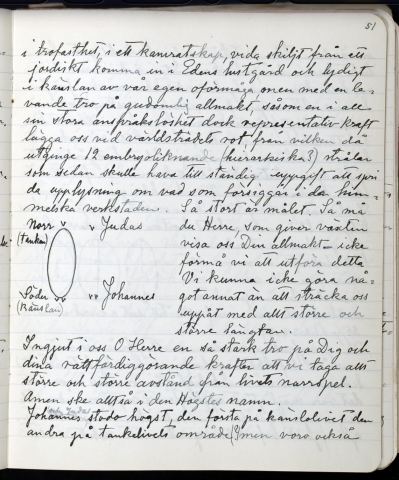 51
i trofasthet, i ett kamratskap, vida skiljt från ett
jordiskt komma in i Edens lustgård och lydigt
i känslan av vår egen oförmåga men med en le-
vande tro på gudomlig allmakt, såsom en i all
sin stora anspråkslöshet dock representativ kraft
lägga oss vid världsträdets rot, från vilken då
utginge 12 embryoliknande (hierarkiska?) strålar
som sedan skulle hava till ständig uppgift att spri
da upplysning om vad som försiggår i da him-
melska verkstaden. Så stort är målet. Så må
Norr Judas du Herre, som giver växten
(tankan) visa oss Den allmakt — icke
förmå vi att utföra detta
Vi kunna icke göra nå-
got annat än att sträcka oss
Söder Johannes uppåt med allt större och
(Känslan) större längtan.
Ingjut i oss O Herre en så stark tro på Dig och
dina rättfärdiggörande krafter att vi taga allt
större och större avstånd från livets narrspel.
Amen ske alltså i den Högstes namn.
och Judas
Johannes stodo högst, den första på känslolivet den
andra på tankelivets område, men voro också